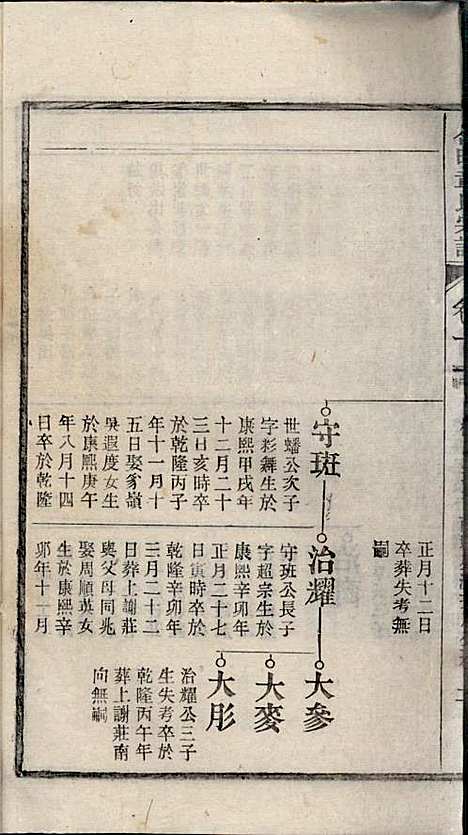 正月十二日
卒葬失考無
嗣
守班
世蟠公次子
字彩舞生於
康熙甲戌年
十二月二十
三日亥時卒
於乾隆丙子
年十一月十
五日娶家嶺
吳遐度女生
於康熙庚午
年八月十四
日卒於乾隆
治耀
守班公長子
字超宗生於
康熙辛卯年
正月二十七
日寅時卒於
乾隆辛卯年
三月二十二
日葬上謝莊
與父母同兆
娶周順英女
生於康熙辛
卯年十一月
大參
大麥
大彤
治耀公三子
生失考卒於
乾隆丙午年
葬上謝莊南
向無嗣